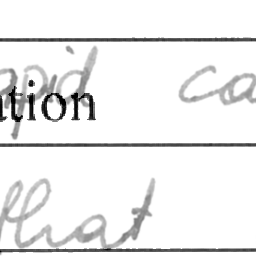 apid ca
ation
that